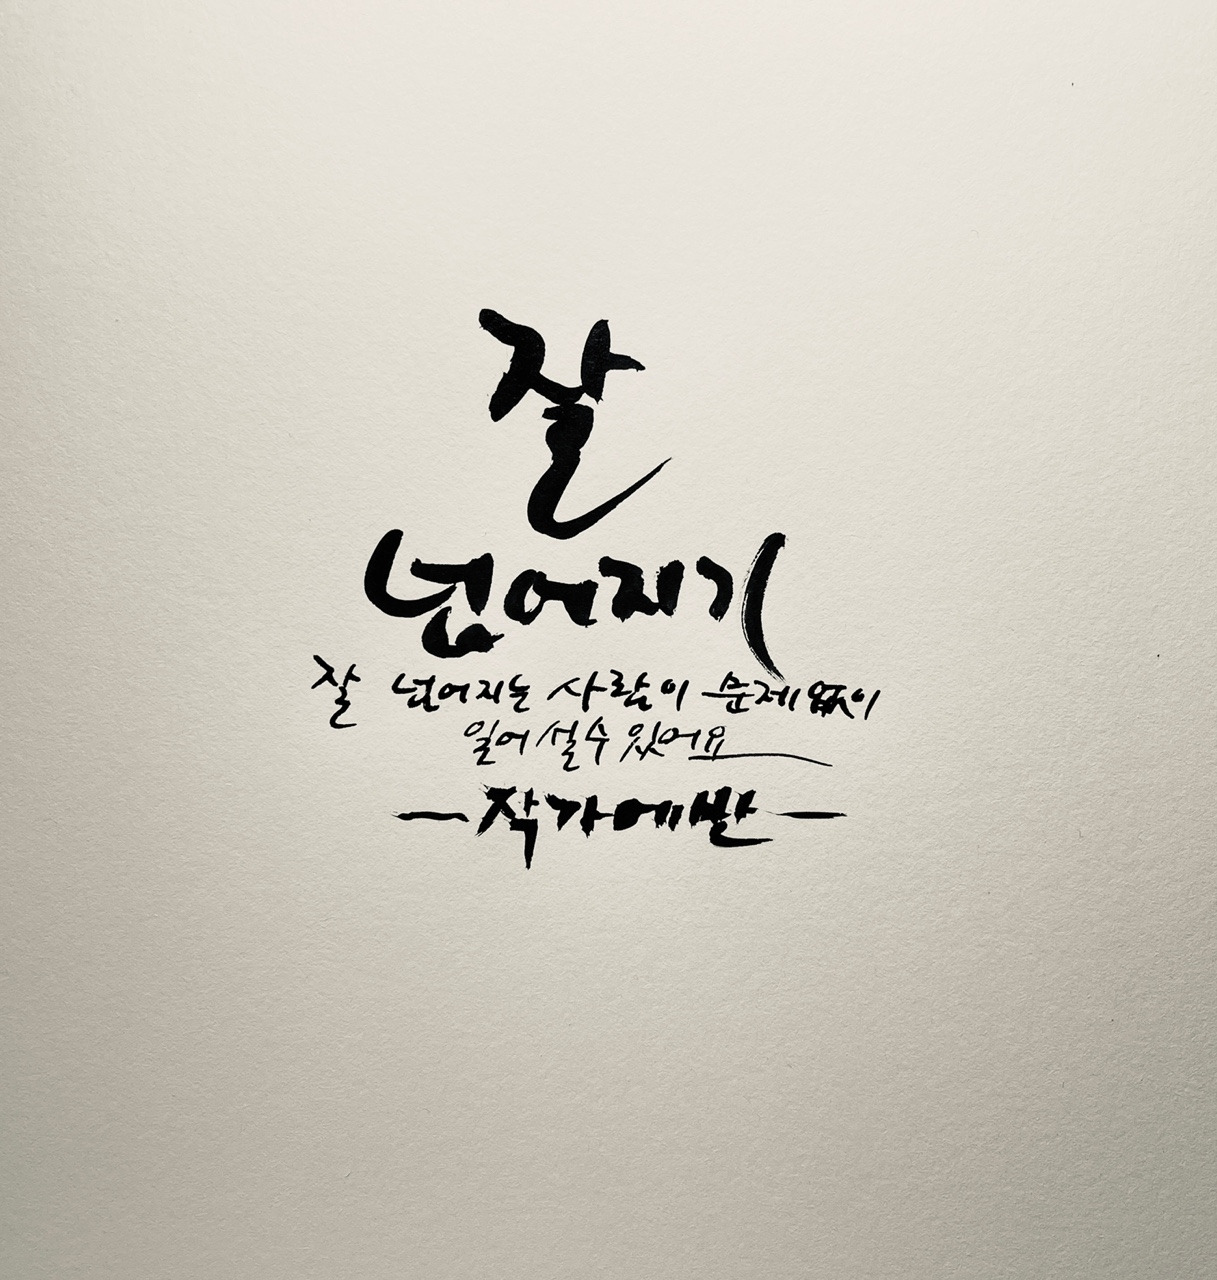 잘
넘어지기
잘 넘어지는 사람이 문제없이
일어설 수 있어요
-작가에반-